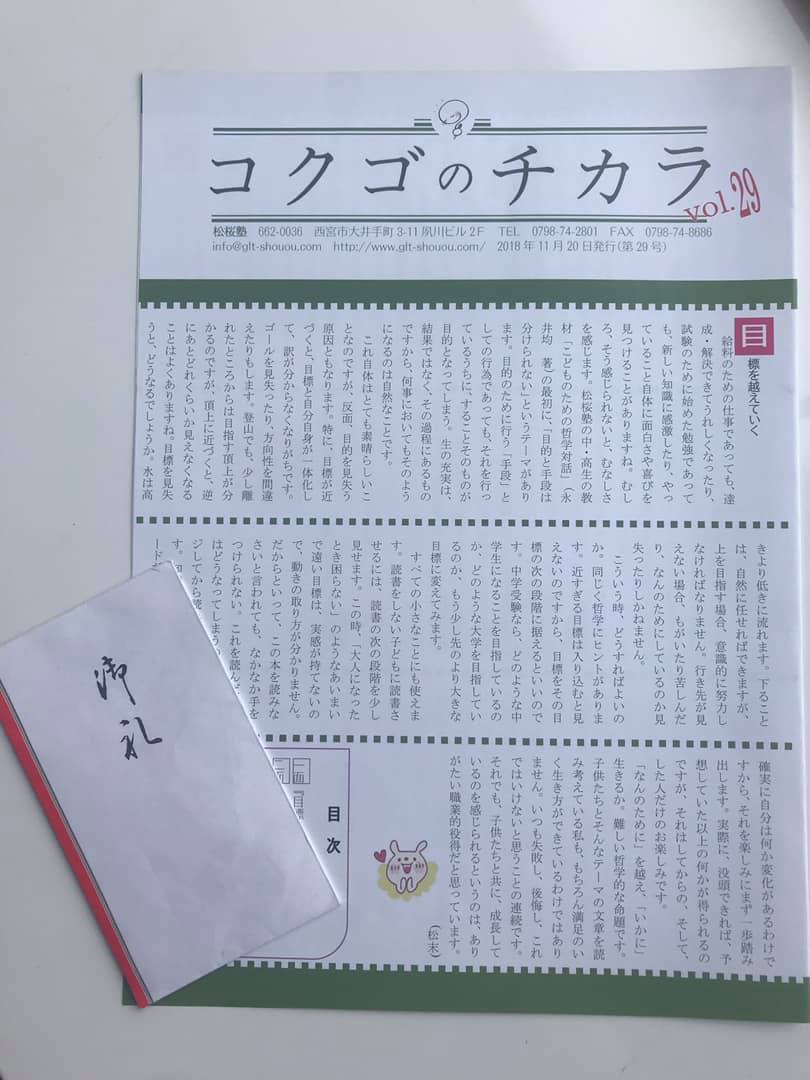 コクゴのチカラ
vol.29
松桜塾 662-0036 西宮市大井手町 3-11 夙川ビル 2F TEL 0798-74-2801 FAX 0798-74-8686
info@glt-shouou.com http://www.glt-shouou.com/ 2018 年 11 月 20 日発行(第 29 号)
目標を越えていく
給料のための仕事であっても、達
成・解決できてうれしくなったり、
試験のために始めた勉強であって
も、新しい知識に感激したり、やっ
ていること自体に面白さや喜びを
見つけることがありますね。むし
ろ、そう感じられないと、むなしさ
を感じます。松桜塾の中・高生の教
材「こどものための哲学対話」(永
井均 著)の最初に、「目的と手段は
分けられない」というテーマがあり
ます。目的のために行う「手段」と
しての行為であっても、それを行っ
ているうちに、することそのものが
目的となってしまう。生の充実は、
結果ではなく、その過程にあるもの
ですから、何事においてもそのよう
になるのは自然なことです。
これ自体はとても素晴らしいこ
となのですが、反面、目的を見失う
原因ともなります。特に、目標が近
づくと、目標と自分自身が一体化し
て、訳が分からなくなりがちです。
ゴールを見失ったり、方向性を間違
えたりもします。登山でも、少し離
れたところからは目指す頂上が分
かるのですが、頂上に近づくと、逆
にあとどれくらいか見えなくなる
ことはよくありますね。目標を見失
うと、どうなるでしょうか。水は高
きより低きに流れます。下ること
は、自然に任せればできますが、
上を目指す場合、意識的に努力し
なければなりません。行き先が見
えない場合、もがいたり苦しんだ
り、なんのためにしているのか見
失ったりしかねません。
こういう時、どうすればよいの
か。同じく哲学にヒントがありま
す。近すぎる目標は入り込むと見
えないのですから、目標をその目
標の次の段階に据えるといいので
す。中学受験なら、どのような中
学生になることを目指しているの
か、どのような大学を目指してい
るのか、もう少し先のより大きな
目標に変えてみます。
すべての小さなことにも使えま
す。読書をしない子どもに読書さ
せるには、読書の次の段階を少し
見せます。この時、「大人になった
とき困らない」のようなあいまい
で遠い目標は、実感が持てないの
で、動きの取り方が分かりません。
だからといって、この本を読みな
さいと言われても、なかなか手を
つけられない。これを読んだ
はどうなってしまう
ジしてから読
す。
ード
確実に自分は何か変化があるわけで
すから、それを楽しみにまず一歩踏み
出します。実際に、没頭できれば、予
想していた以上の何かが得られるの
ですが、それはしてからの、そして、
した人だけのお楽しみです。
「なんのために」を越え、「いかに」
生きるか。難しい哲学的な命題です。
子供たちとそんなテーマの文章を読
み考えている私も、もちろん満足のい
く生き方ができているわけではあり
ません。いつも失敗し、後悔し、これ
ではいけないと思うことの連続です。
それでも、子供たちと共に、成長して
いるのを感じられるというのは、あり
がたい職業的役得だと思っています。
(松末)
目次
一面
『目標
二面
御礼